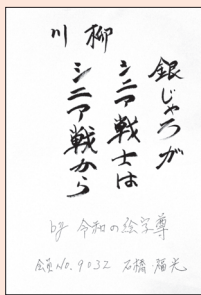 川柳
銀じゃろが
シニア戦士は
シニア戦から
by 令和の絵字尊
会員No.9032 石橋福光